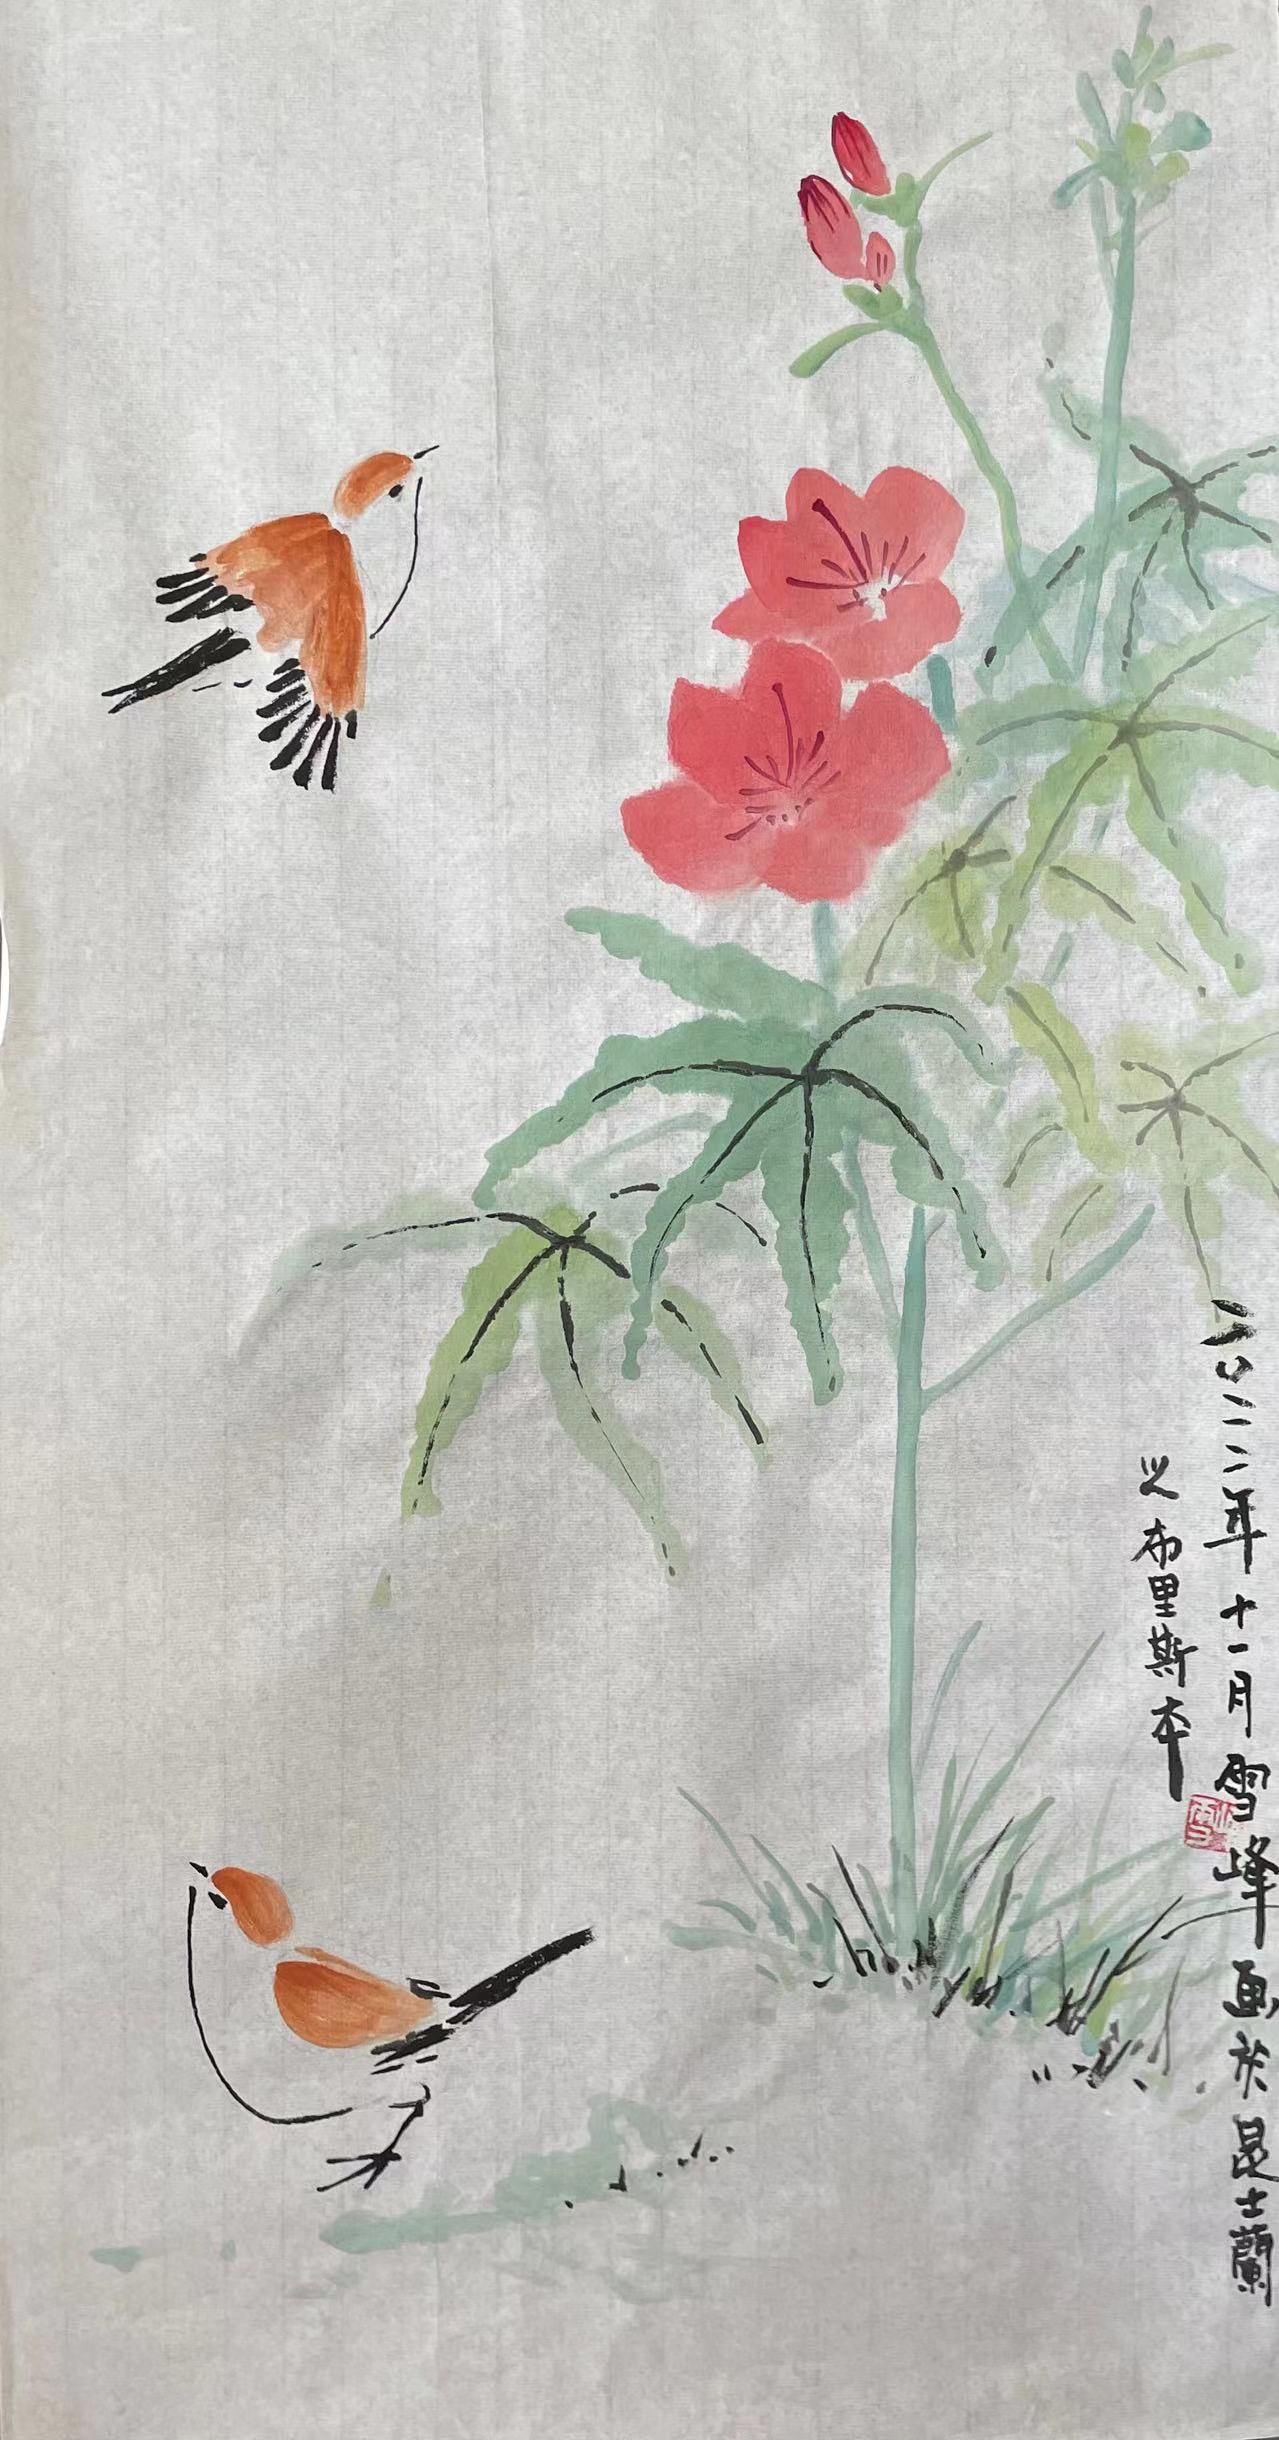 二〇二二年十一月雪峰画於昆士蘭
之布里斯本